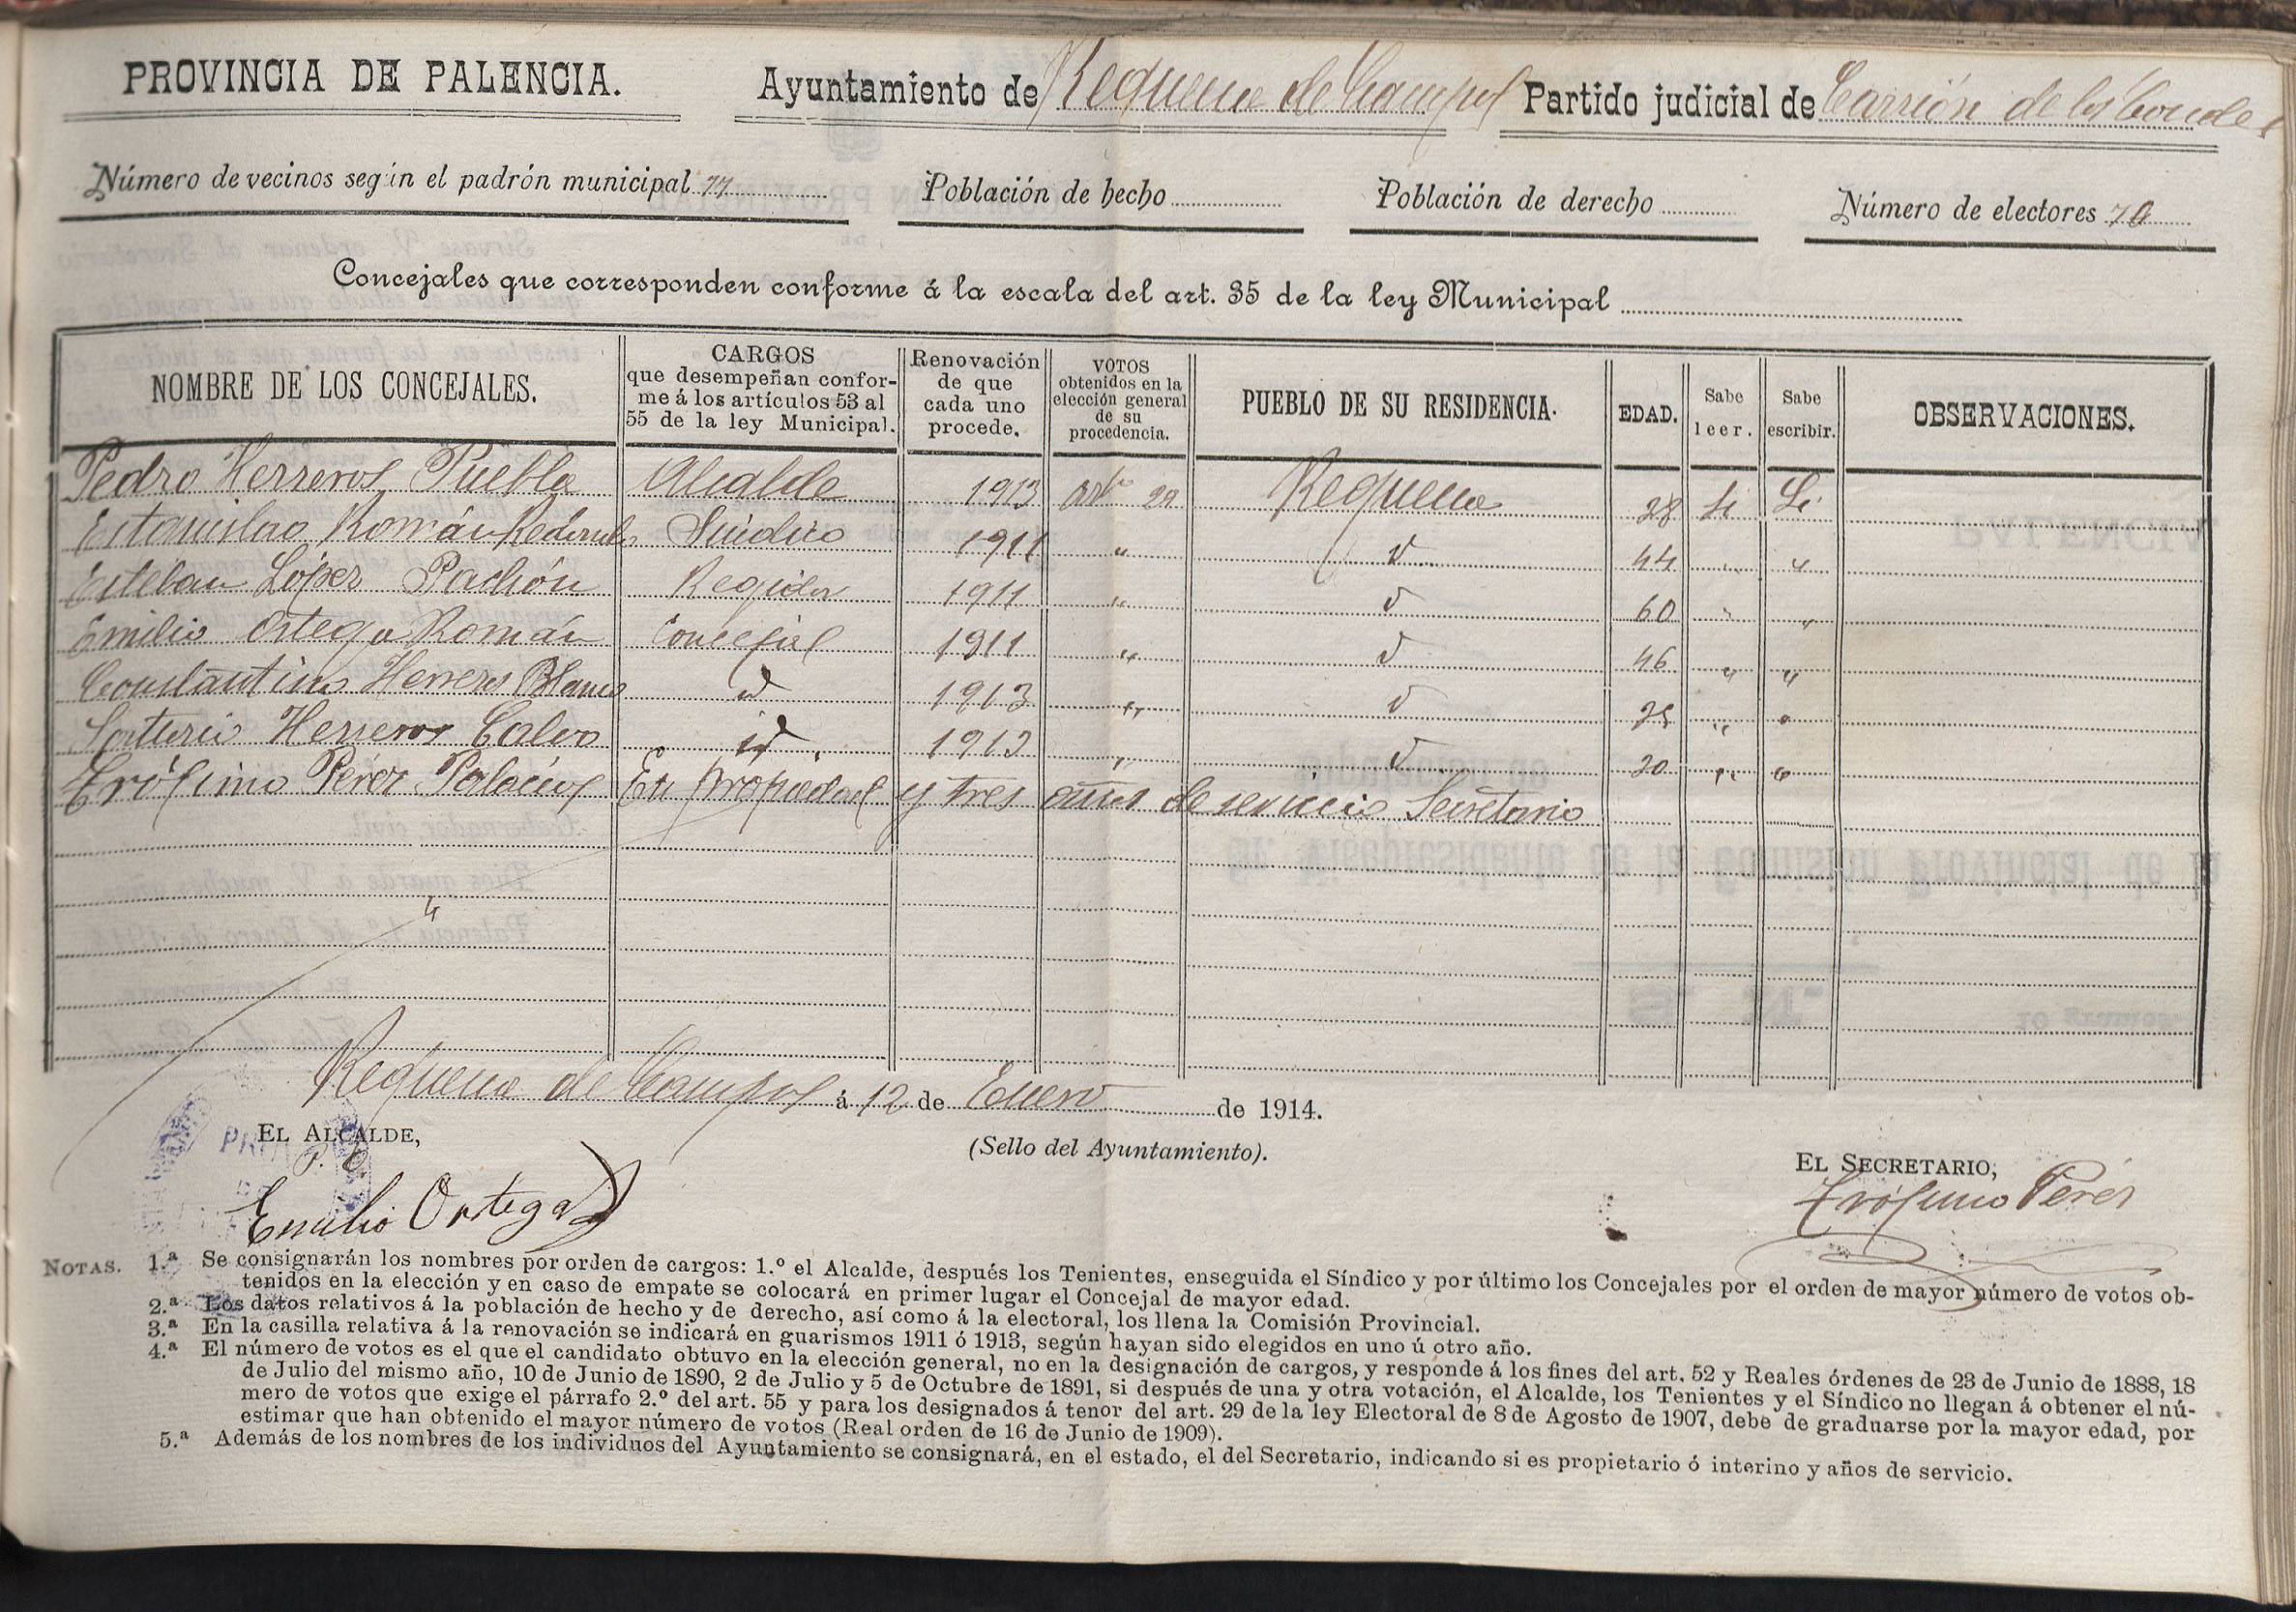 PROVINCIA DE PALENCIA. Ayuntamiento de Requena de Campos Partido judicial de Carrión de los Condes
Número de vecinos según el padrón municipal 77 Población de hecho Población de derecho Número de electores 70
Concejales que corresponden conforme á la escala del art. 35 de la ley Municipal
NOMBRE DE LOS CONCEJALES.
CARGOS
que desempeñan confor-
me á los artículos 53 al
55 de la ley Municipal.
Renovación
de que
cada uno
procede.
VOTOS
obtenidos en la
elección general
de su
procedencia.
PUEBLO DE SU RESIDENCIA.
EDAD.
Sabe
leer.
Sabe
escribir.
OBSERVACIONES.
Pedro Herreros Puebla Alcalde 1913 artº 29 Requena 28 Si Si
Estanislao Román Redondo Síndico 1911 " id 44 " "
Esteban López Pachón Regidor 1911 " id 60 " "
Emilio Ortega Román Concejal 1911 " id 46 " "
Constantino Herreros Blanco id 1913 " id 25 " "
Saturio Herreros Calvo id. 1913 " id 30 " "
Trófimo Pérez Palacios En propiedad y tres años de servicio Secretario
Requena de Campos á 12 de Enero de 1914.
EL ALCALDE,
(Sello del Ayuntamiento).
EL SECRETARIO,
Emilio Ortega
Trófimo Pérez
NOTAS. 1.ª Se consignarán los nombres por orden de cargos: 1.º el Alcalde, después los Tenientes, enseguida el Síndico y por último los Concejales por el orden de mayor número de votos ob-
tenidos en la elección y en caso de empate se colocará en primer lugar el Concejal de mayor edad.
2.ª Los datos relativos á la población de hecho y de derecho, así como á la electoral, los llena la Comisión Provincial.
3.ª En la casilla relativa á la renovación se indicará en guarismos 1911 ó 1913, según hayan sido elegidos en uno ú otro año.
4.ª El número de votos es el que el candidato obtuvo en la elección general, no en la designación de cargos, y responde á los fines del art. 52 y Reales órdenes de 23 de Junio de 1888, 18
de Julio del mismo año, 10 de Junio de 1890, 2 de Julio y 5 de Octubre de 1891, si después de una y otra votación, el Alcalde, los Tenientes y el Síndico no llegan á obtener el nú-
mero de votos que exige el párrafo 2.º del art. 55 y para los designados á tenor del art. 29 de la ley Electoral de 8 de Agosto de 1907, debe de graduarse por la mayor edad, por
estimar que han obtenido el mayor número de votos (Real orden de 16 de Junio de 1909).
5.ª Además de los nombres de los individuos del Ayuntamiento se consignará, en el estado, el del Secretario, indicando si es propietario ó interino y años de servicio.